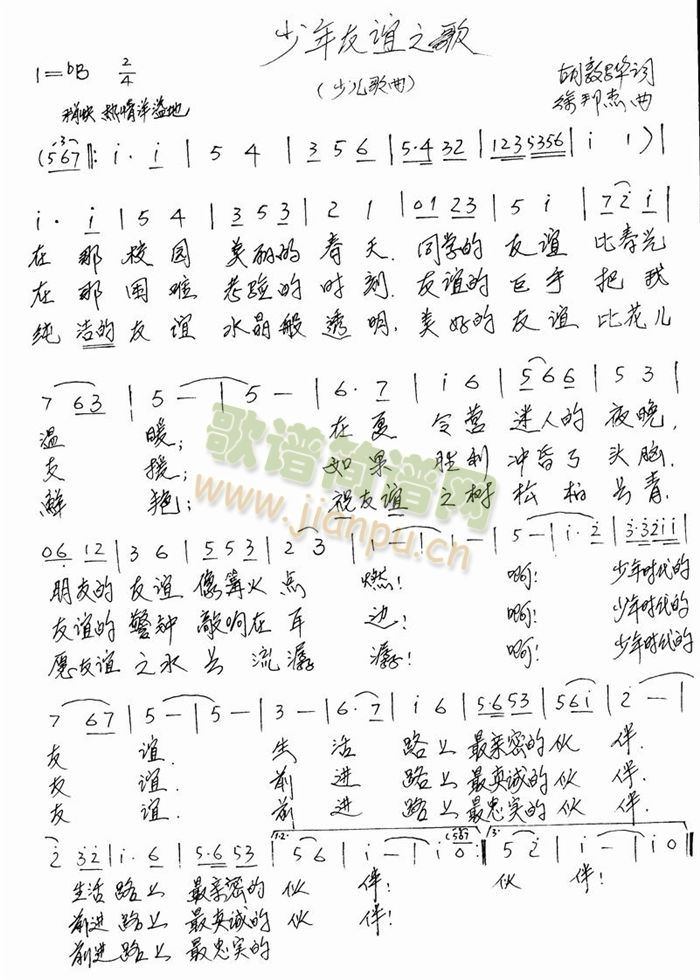 少年友谊之歌
(少儿歌曲)
1=bB 2/4
胡敦骅词
徐邦杰曲
稍快 热情洋溢地
(567 ‖: i· i | 5 4 | 3 5 6 | 5·4 32 | 123 5356 | i 1 ) |
i· i | 5 4 | 3 5 3 | 2 1 | 01 23 | 5 i | 7 2 i |
在 那 校园 美丽的 春 天. 同学的 友谊 比春光
在 那 困难 考验的 时刻. 友谊的 巨手 把我
纯 洁的 友谊 水晶般 透明. 美好的 友谊 比花儿
7 63 | 5 - | 5 - | 6· 7 | i 6 | 5 6 6 | 5 3 |
温 暖; 在夏 令营 迷人的 夜晚,
支 援; 如果 胜利 冲昏了 头脑.
鲜 艳; 祝友谊 之树 松柏 长青.
歌谱简谱网
www.jianpu.cn
06 12 | 3 6 | 5 5 3 | 2 3 | i - | i - | 5 - | i· 2 | 3·3 2 i i |
朋友的 友谊 像篝火 点 燃! 啊! 少年时代的
友谊的 警钟 敲响在 耳 边! 啊! 少年时代的
愿友谊 之水 长 流潺 潺! 啊! 少年时代的
7 67 | 5 - | 5 - | 3 - | 6· 7 | i 6 | 5·6 53 | 56 i | 2 - |
友 谊. 生 活 路上 最亲密的 伙 伴.
友 谊. 前 进 路上 最真诚的 伙 伴.
友 谊. 前 进 路上 最忠实的 伙 伴.
1.2. (567 3.
2 32 | i· 6 | 5·6 53 | 5 6 | i - | i 0 :‖ 5 2 | i - | i 0 ‖
生活 路上 最亲密的 伙 伴! 伙 伴!
前进 路上 最真诚的 伙 伴!
前进 路上 最忠实的